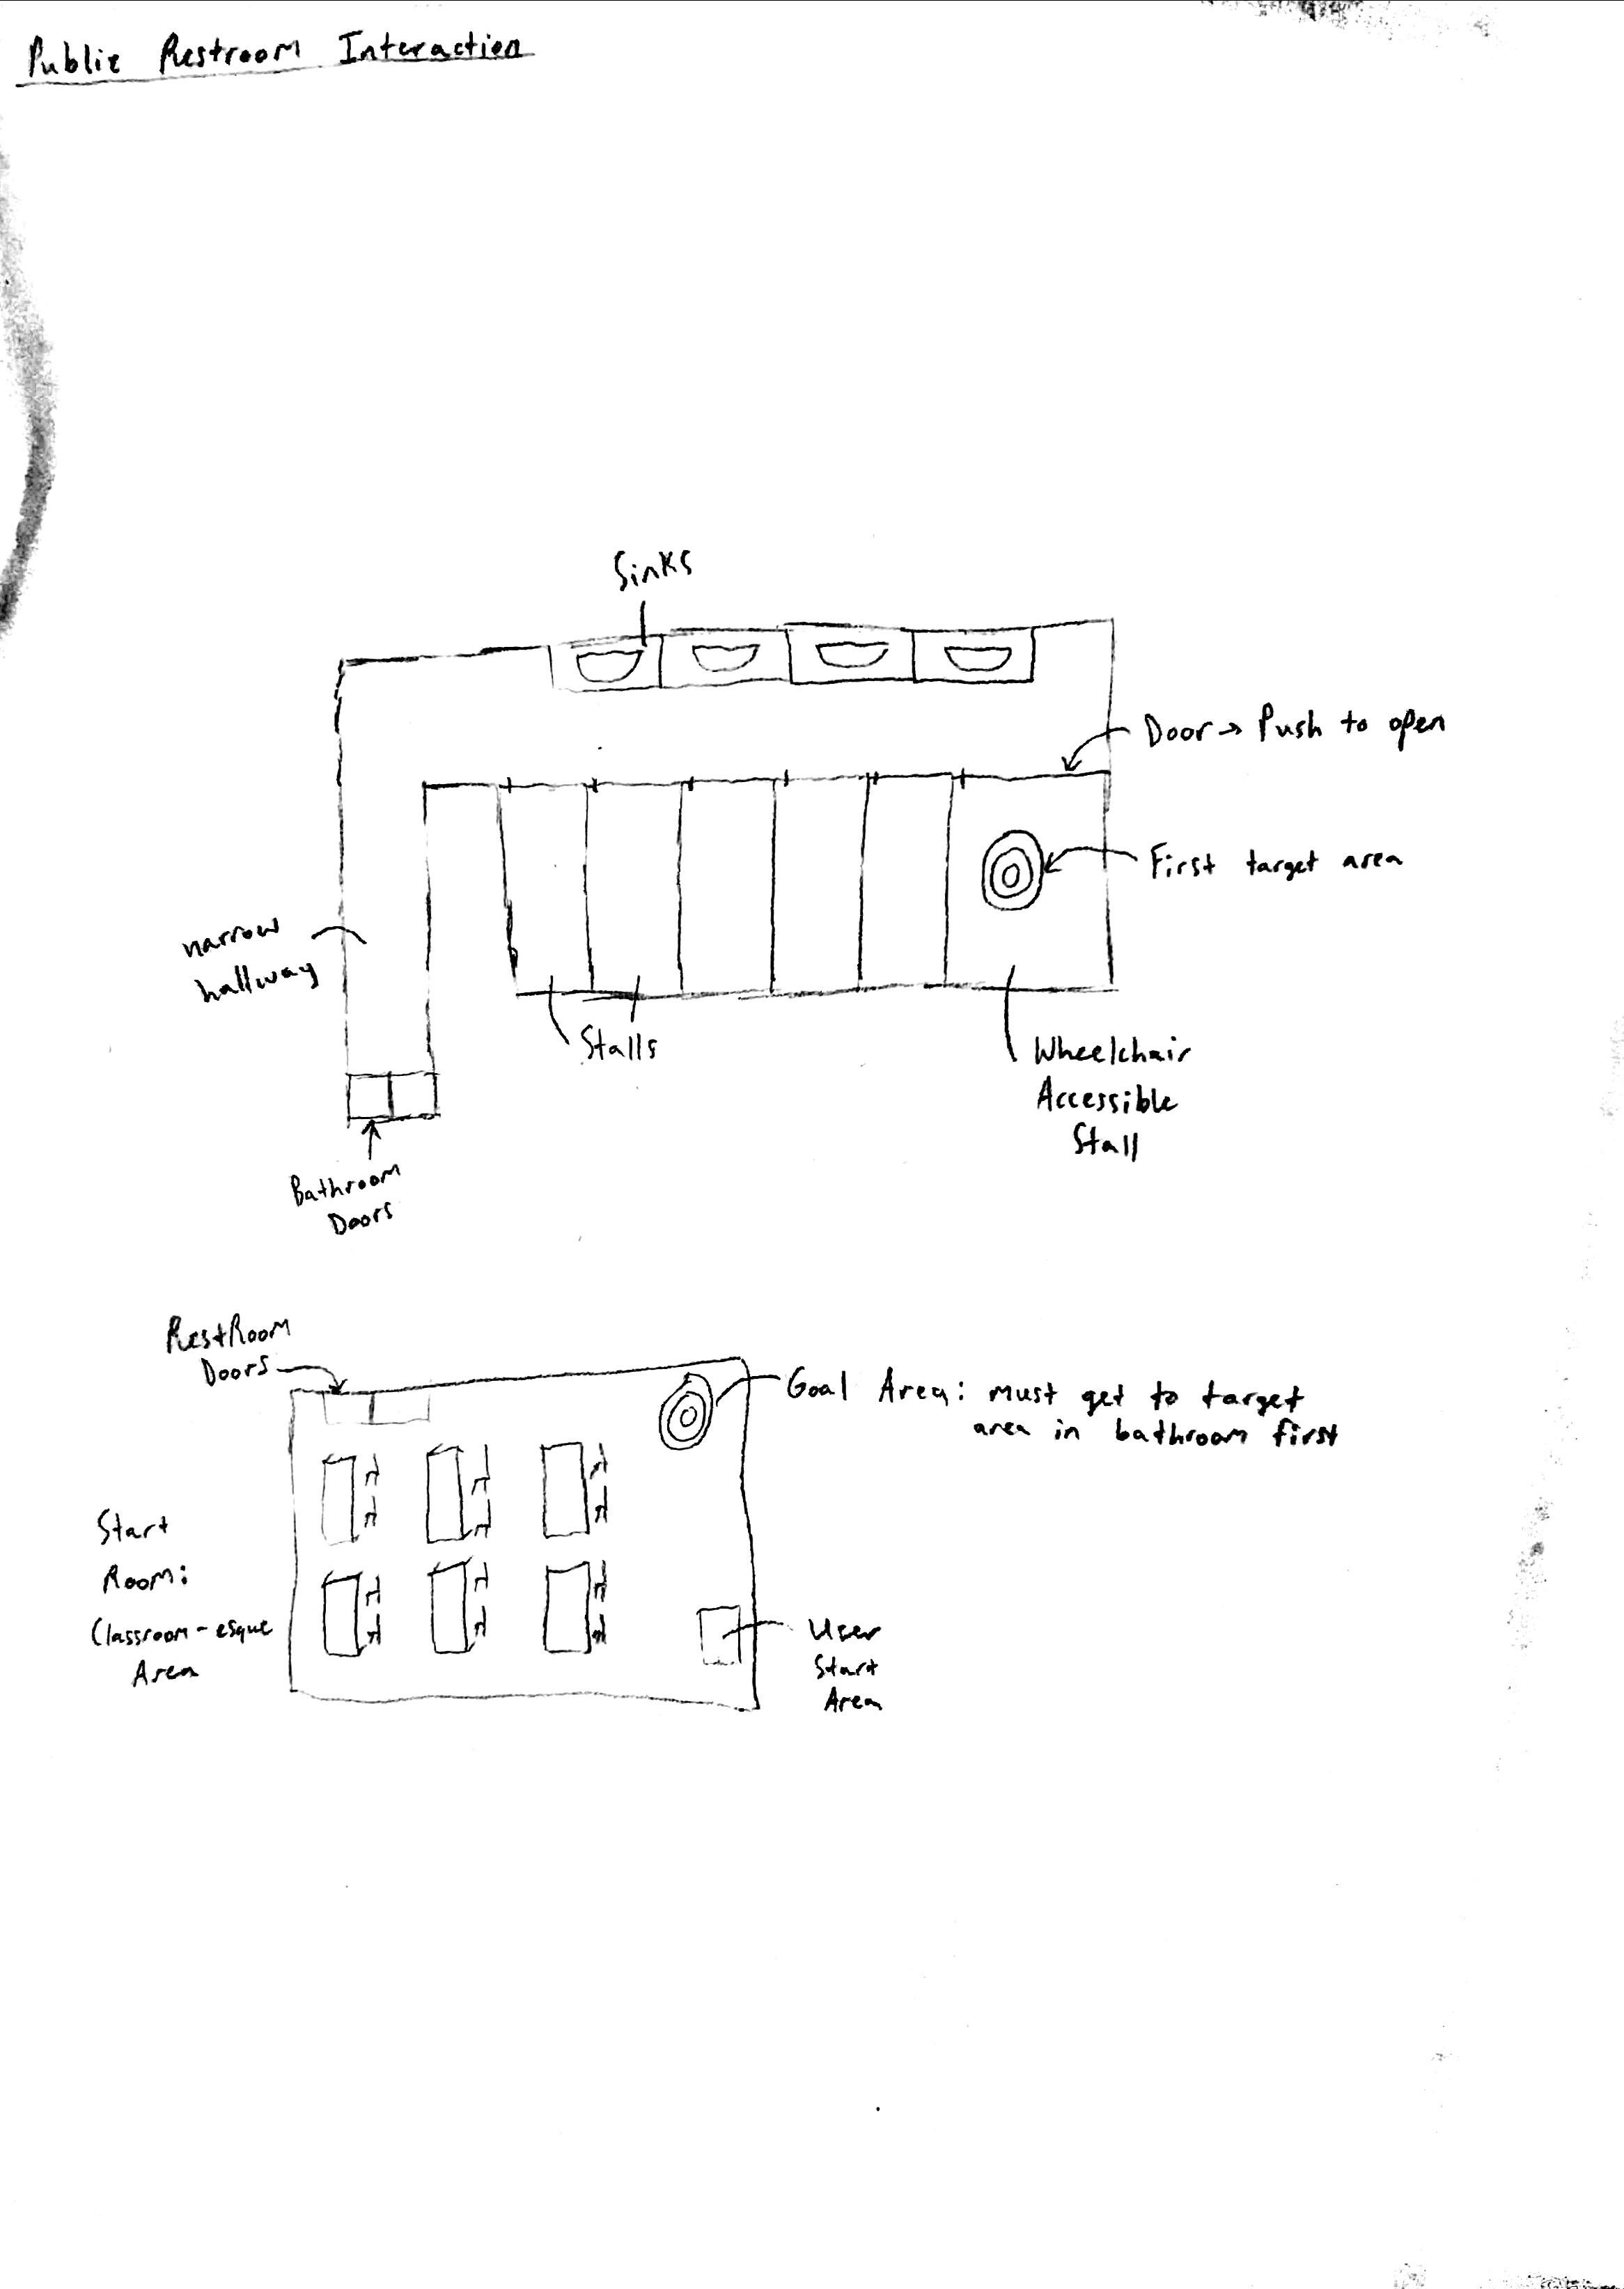 Public Restroom Interaction
Sinks
Door → Push to open
First target area
narrow
hallway
Stalls
Wheelchair
Accessible
Stall
Bathroom
Doors
RestRoom
Doors
Goal Area: must get to target
area in bathroom first
Start
Room:
Classroom-esque
Area
User
Start
Area